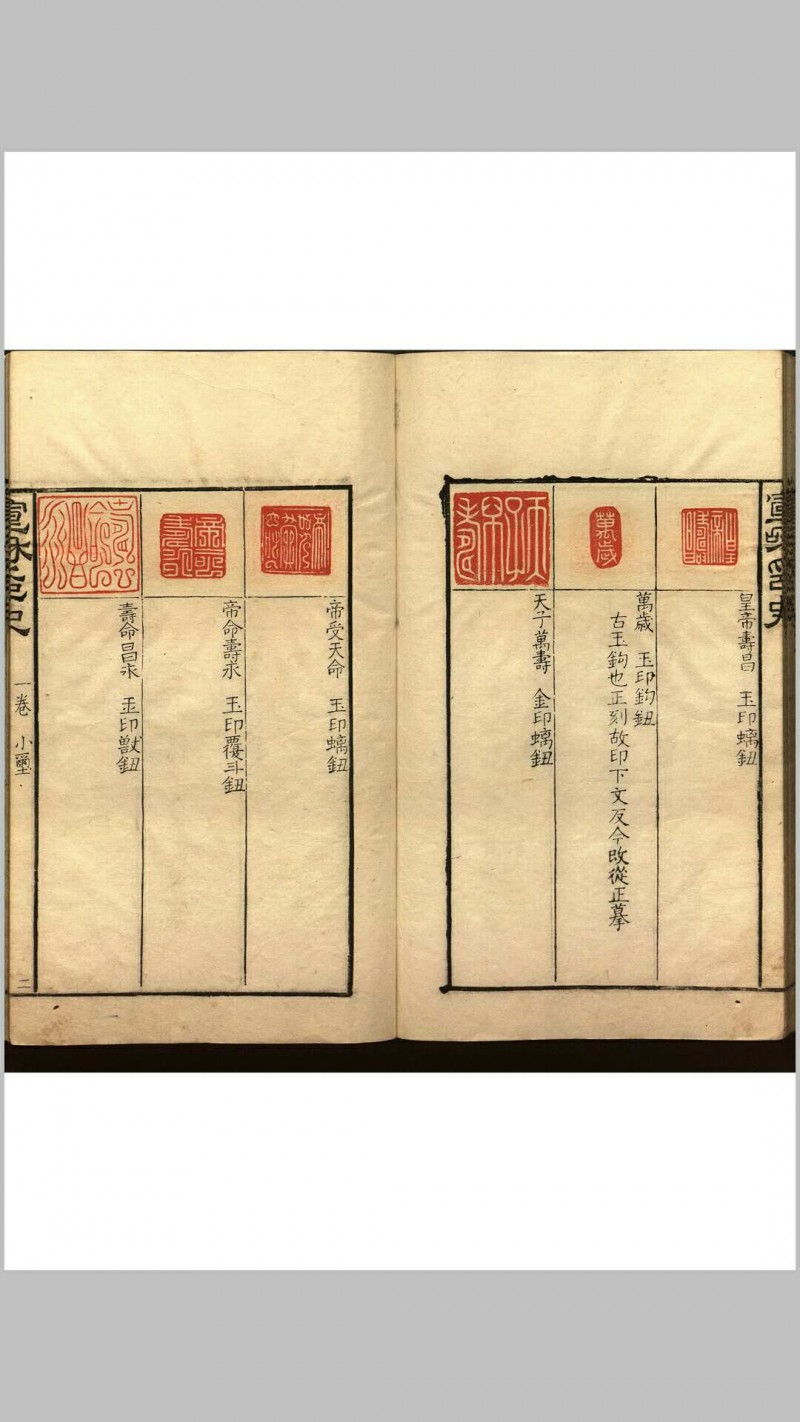 皇帝壽昌　玉印螭鈕
萬歲　玉印鈎鈕
古玉鈎也正刻故印下文反今改從正摹
天子萬壽　金印螭鈕
帝受天命　玉印螭鈕
帝命壽永　玉印覆斗鈕
壽命昌永　玉印獸鈕
一卷　小璽
二